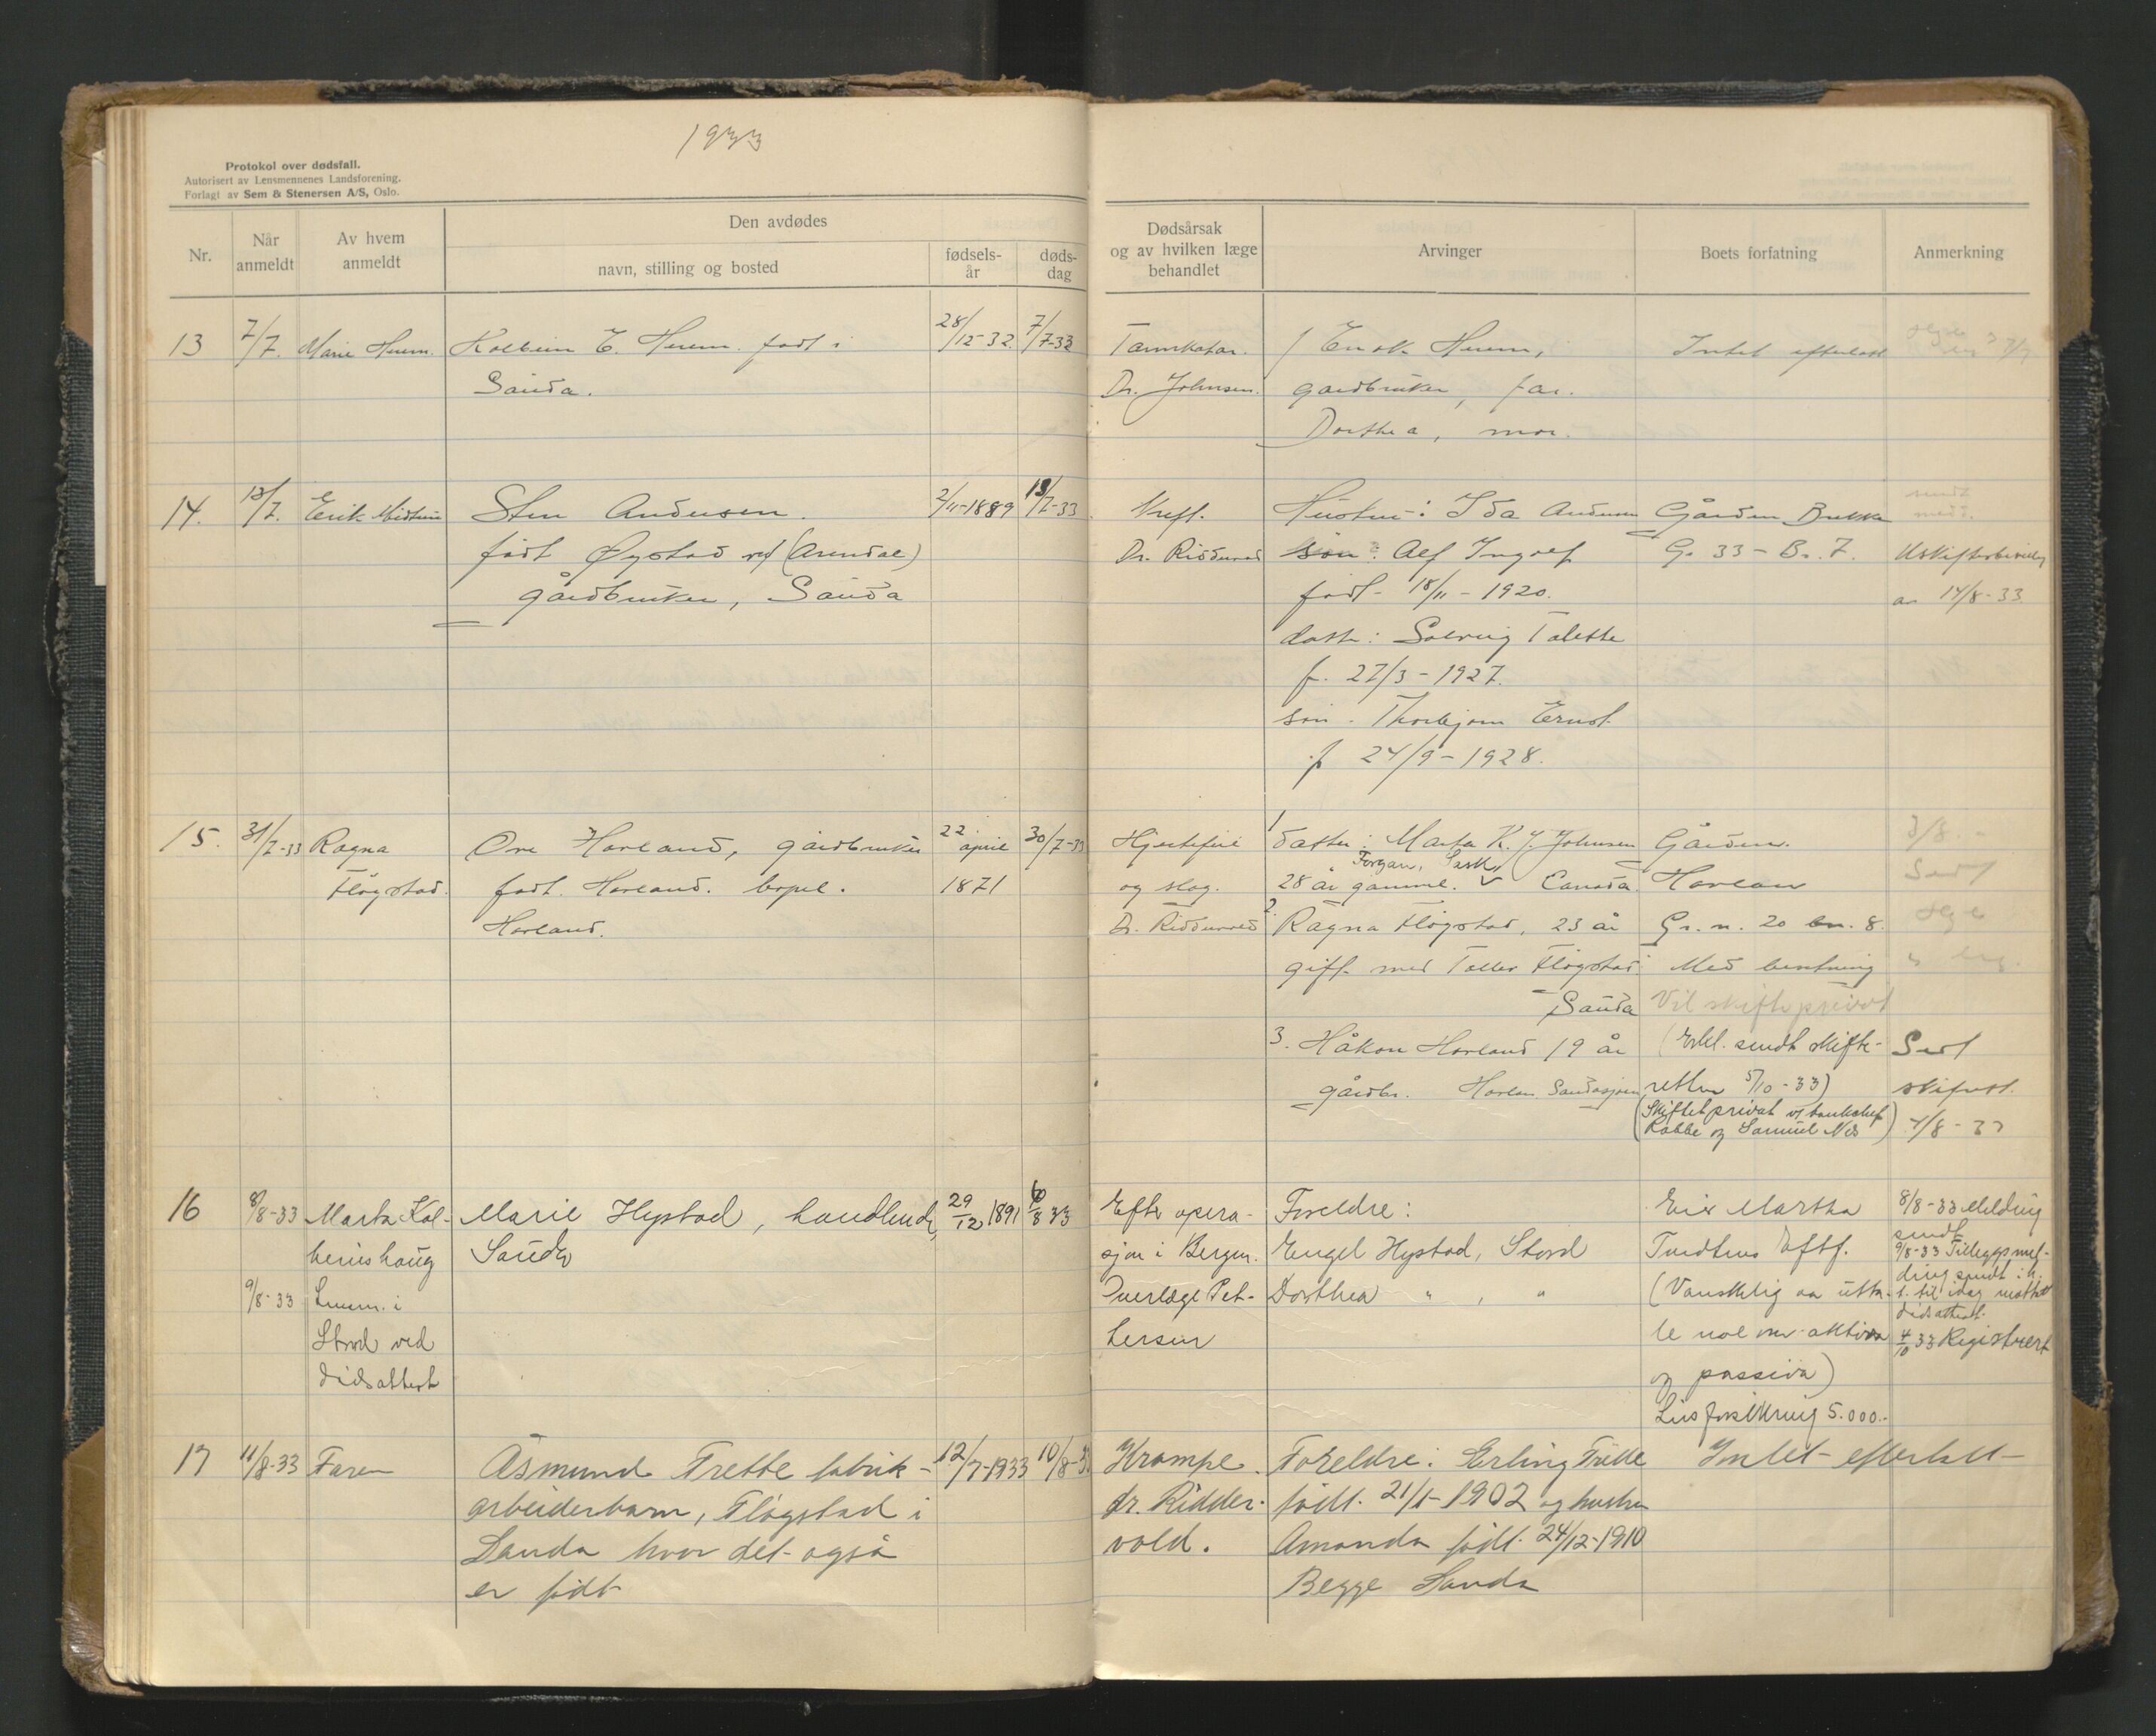 1933
Protokol over dødsfall.
Autorisert av Lensmennenes Landsforening.
Forlagt av Sem & Stenersen A/S, Oslo.
Nr.
Når anmeldt
Av hvem anmeldt
Den avdødes
navn, stilling og bosted
fødsels-år
døds-dag
Dødsårsak
og av hvilken læge
behandlet
Arvinger
Boets forfatning
Anmerkning
13 7/7. Marie Herum. Kolbein E. Herum. født i 28/12-32 7/7-33 Tarmkatar. Enok Herum, Intet efterlatt
Sauda. Dr. Johnsen. gardbruker, far.
Dorthea, mor.
14. 13/7. Erik Sten Andersen. 2/11-1889 13/7-33 Kreft. Hustru: Ida Andersen Gården Brekke sendt
født Øystad ved (Arendal) Dr. Riddervold søn: Alf Ingolf G. 33 - Br. 7. Uskiftebevilling
gårdbruker, Sauda født 18/11-1920. av 14/8-33
datter: Solveig Talette
f. 27/3-1927.
søn. Thorbjørn Ernst
f 24/9-1928.
15. 31/7-33 Ragna Ove Havland, gårdbruker 22 april 30/7-33 Hjertefeil 1 datter: Marta K. J. Johnsen Gården 3/8.
Fløgstad. født Havland. bopel. 1871 og slag. 28 år gammel. Forgan, Sask, Canada Havland Sendt
Havland. Dr. Riddervold 2. Ragna Fløgstad, 23 år Gr. n. 20 bn. 8.
gift med Tollev Fløgstad Med besetning
Sauda Vil skifte privat
3. Håkon Havland 19 år (Erkl. sendt skifte- Sendt
gårdbr. Havland Saudasjøen retten 5/10-33) skifterett.
(Skiftet privat v/ banksjef
Rabbe og Samuel Nes) 4/8-33
16 8/8-33 Marta Kol- Marie Hystad, handlende, 29/12 1891 6/8 33 Efter opera- Foreldre: Eier Martha 8/8-33 Melding
beinshaug Sauda sjon i Bergen. Engel Hystad, Stord Tveitens Eftf. sendt
9/8-33 Lensm. i Overlæge Pet- Dorthea " , " (Vanskelig aa utta- 9/8-33 Tilleggsmel-
Stord ved tersen le noe om aktiva ding sendt
dødsattest og passiva) 4/10 33 Registrert
Livsforsikring 5.000.-
17 11/8-33 Faren Åsmund Trette fabrik- 12/7-1933 10/8-33 Krampe. Foreldre: Erling Trette Intet efterlatt
arbeiderbarn, Fløgstad i dr. Ridder- født 21/1-1902 og hustru
Sauda hvor det også vold. Amanda født 24/12-1910
er født Begge Sauda